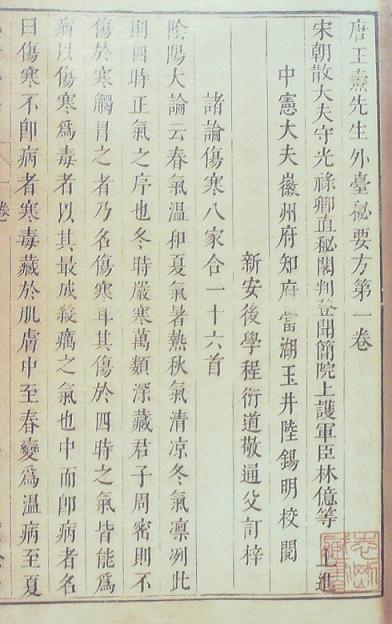 唐王燾先生外臺秘要方第一卷
宋朝散大夫守光祿卿直秘閣判登聞簡院上護軍臣林億等 上進
中憲大夫徽州府知府當湖玉井陸錫明校閱
新安後學程衍道敬通父訂梓
諸論傷寒八家合一十六首
陰陽大論云春氣溫和夏氣暑熱秋氣清凉冬氣凛冽此
則四時正氣之序也冬時嚴寒萬類深藏君子周密則不
傷於寒觸冒之者乃名傷寒耳其傷於四時之氣皆能爲
病以傷寒爲毒者以其最成殺癘之氣也中而卽病者名
曰傷寒不卽病者寒毒藏於肌膚中至春變爲溫病至夏
卷